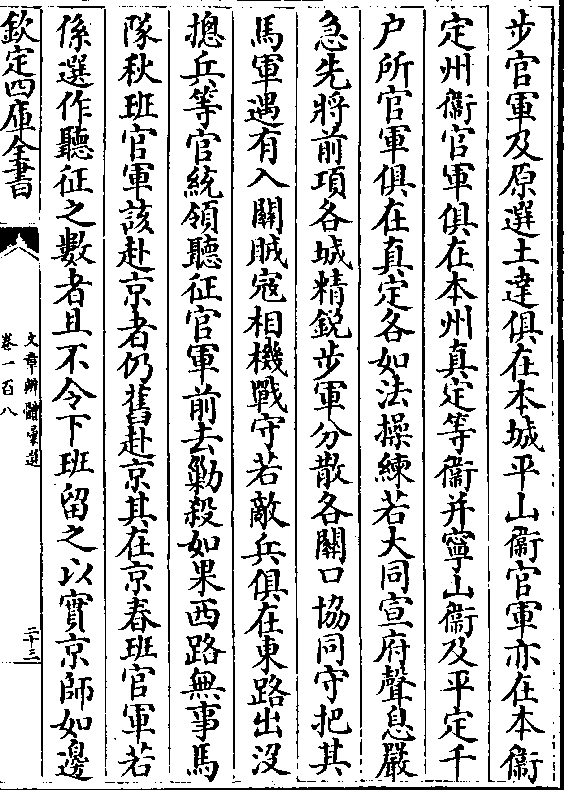 步官軍及原選土達俱在本城平山衞官軍亦在本衞
定州衞官軍俱在本州真定等衞并寧山衞及平定千
户所官軍俱在真定各如法操練若大同宣府聲息嚴
急先將前項各城精鋭步軍分散各關口協同守把其
馬軍遇有入關賊寇相機戰守若敵兵俱在東路出沒
摠兵等官統領聽征官軍前去勦殺如果西路無事馬
隊秋班官軍該赴京者仍舊赴京其在京春班官軍若
係選作聽征之數者且不令下班留之以實京師如邊
欽定四庫全書
文章辨體彙選
卷一百八
二十三